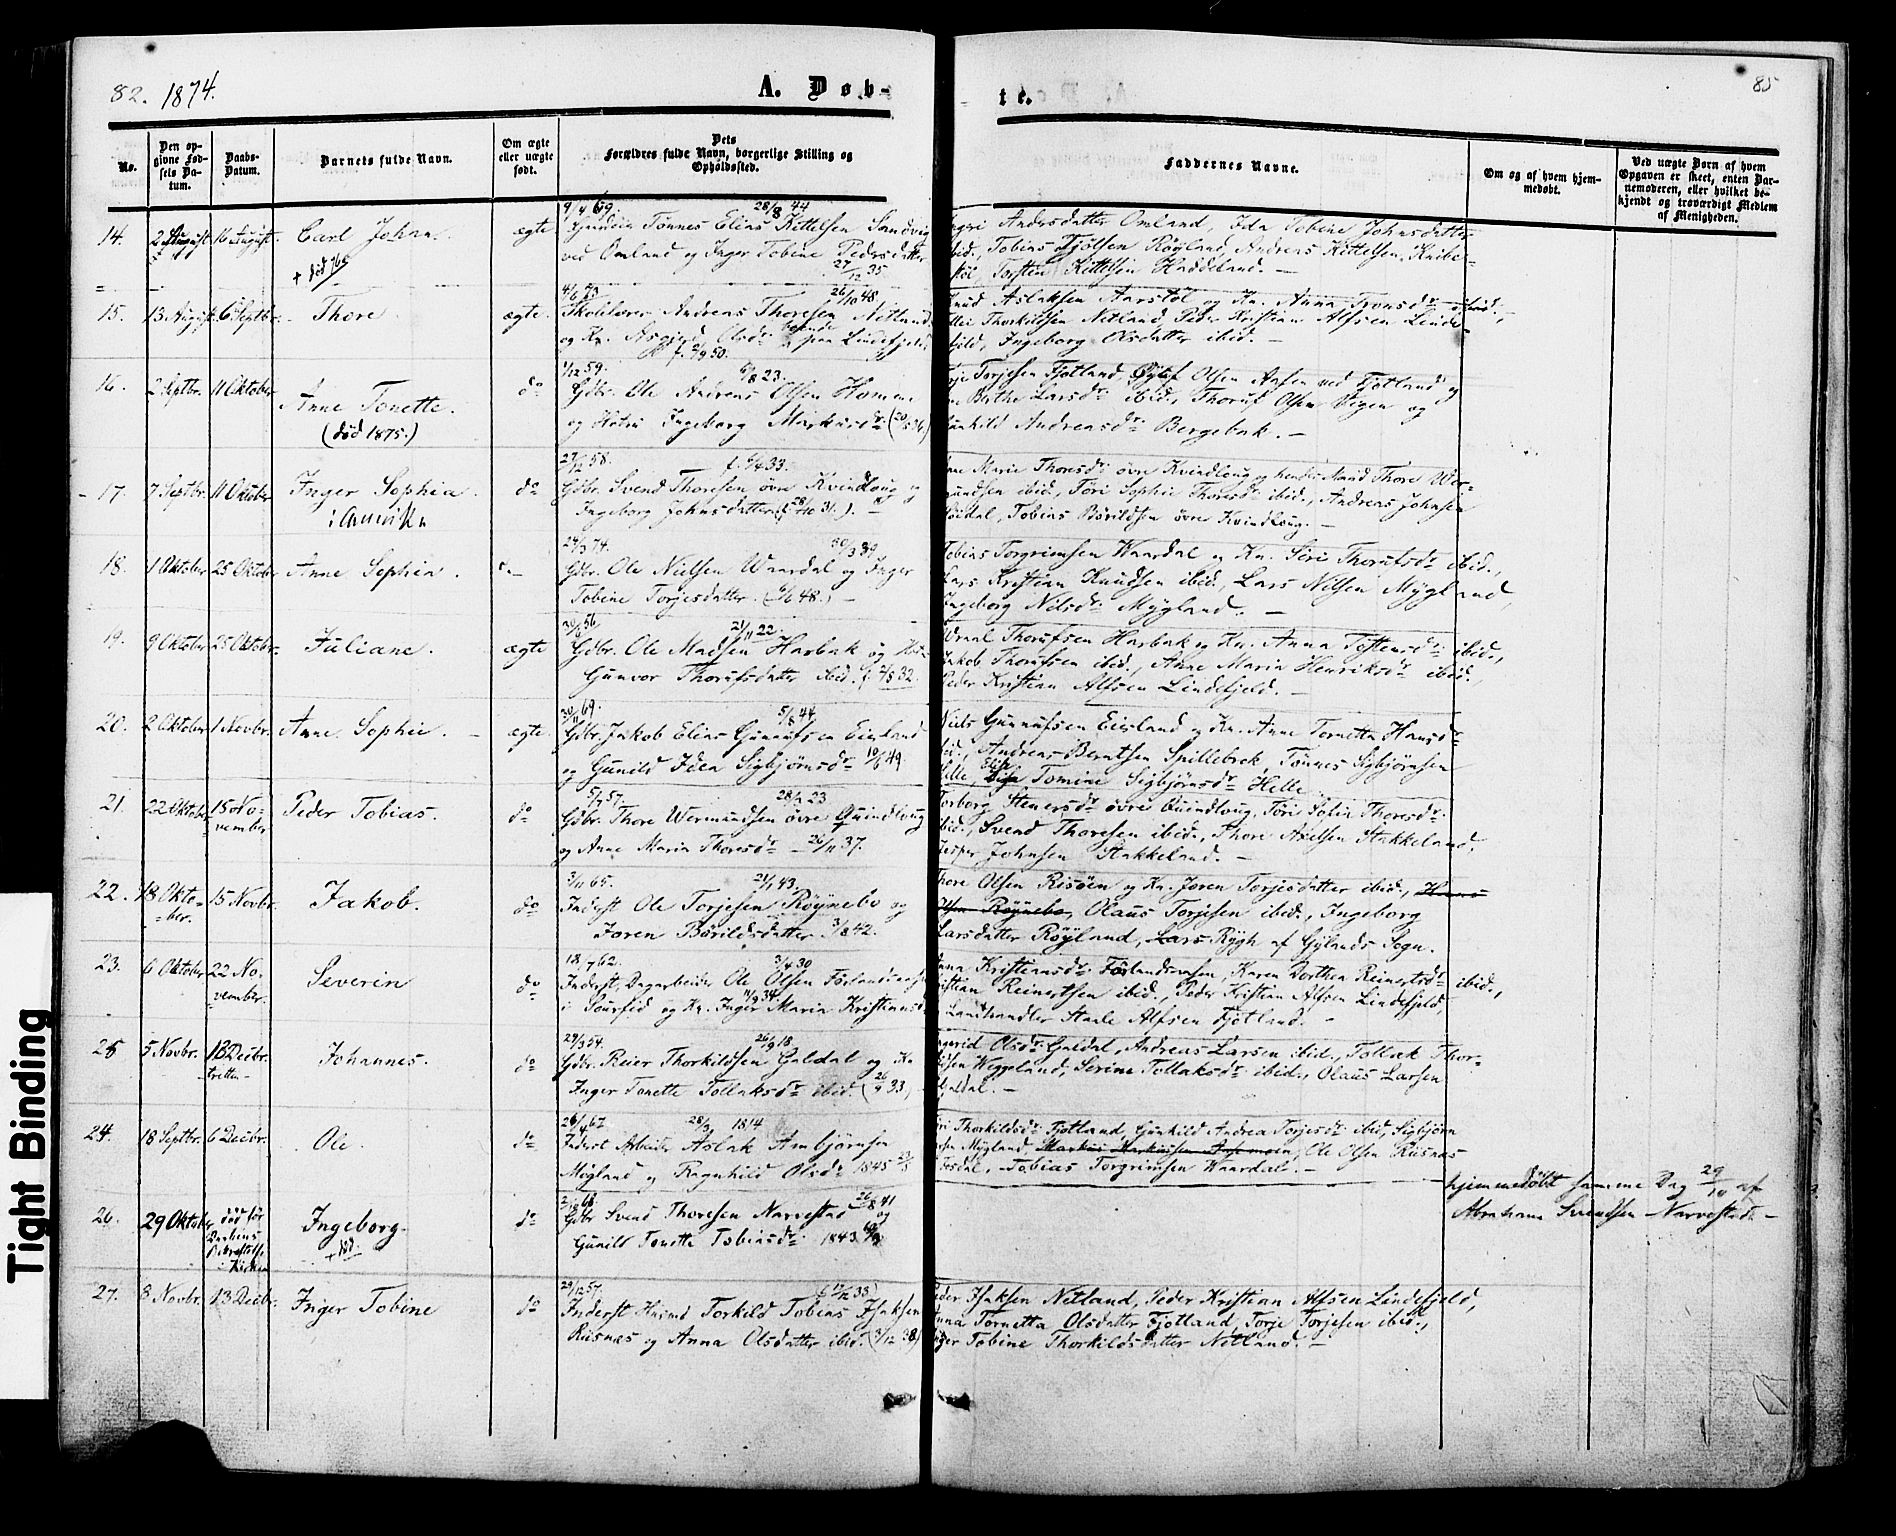 82. 1874.
A. Døb-
te.
85
No.
Den op-
givne Fød-
sels Da-
tum.
Daabs-
Datum.
Barnets fulde Navn.
Om ægte
eller uægte
født.
Dets
Forældres fulde Navn, borgerlige Stilling og
Opholdssted.
Faddernes Navne.
Om og af hvem hjem-
medøbt.
Ved uægte Børn af hvem
Opgaven er skeet, enten Bar-
nemoderen, eller hvilket be-
kjendt og troværdigt Medlem
af Menigheden.
14. 2 August 16 August. Carl Johan.
+ død
ægte
28/8 44
Tønnes Elias Kittelsen Sandvig
ved Omland og Inger Tobine Pedersdatter
27/12 35
Andersdatter Omland, Ida Tobine Johnsdatter
ibid., Tobias Fjølsen Røyland, Andreas Kittelsen Knibe-
støl, Torsten Kittelsen Haddeland. —
15. 13 August. 6 Septbr. Thore
ægte.
26/10 48.
Skolelærer Andreas Thoresen Netland
og Kn. Asgjerd Olsdr. boende paa Lindefjeld
f. 2/9 50.
Knud Aslaksen Aarstøl og Kn. Anna Tronsdr. ibid.,
Thorkildsen Netland, Peder Kristian Alfsen Linde-
fjeld, Ingeborg Olsdatter ibid. —
16. 2 Septbr. 11 Oktober Anne Tonette.
(død 1875.)
do
1/12 59.
8/8 23.
Gdbr. Ole Andreas Olsen Homme
og Hstru Ingeborg Markusdr.
Torje Torjesen Fjotland, Olsen Aasen ved Fjotland og
Kn Berthe Larsdr. ibid., Thoruf Olsen Vigen og
Gunhild Andreasdr. Bergebak. —
17. 7 Septbr. 11 Oktober Inger Sophia.
i Amerika
do
27/12 58.
f. 6/4 33.
Gdbr. Svend Thoresen øvre Kvindloug og
Ingeborg Johnsdatter (28/10 31.). —
Anne Marie Thoresdr. øvre Kvindloug og hendes Mand Thore Wer-
mundsen ibid., Töri Sophie Thoresdr. ibid., Andreas Johnsen
Tobias Børildsen øvre Kvindloug. —
18. 1 Oktober 25 Oktober Anne Sophia.
24/3 74.
30/3 39.
Gdbr. Ole Nielsen Waardal og Inger
Tobine Torjesdatter. (6/6 48.) —
Tobias Torgrimsen Waardal og Kn. Siri Thorufsdr. ibid.,
Lars Kristian Knudsen ibid., Lars Nilsen Mygland,
Ingeborg Nilsdr. Mygland. —
19. 9 Oktober 25 Oktober Juliane.
ægte
30/6 56.
21/11 22.
Gdbr. Ole Madsen Harbak og Hst.
Gunvor Thorufsdatter ibid. f. 2/8 32.
Thorufsen Harbak og Kn. Anna Tostensdr. ibid.,
Jakob Thorufsen ibid., Anne Maria Henriksdr. ibid.,
Peder Kristian Alfsen Lindefjeld. —
20. 2 Oktober 1 Novbr. Anne Sophie. —
ægte.
30/11 69.
5/8 44.
Gdbr. Jakob Elias Gunnufsen Eiesland
og Gunild Idea Sigbjørnsdr. 10/6 49.
Niels Gunnufsen Eiesland og Kn. Anne Tornetta Hansdr.
ibid., Andreas Berntsen Spillebrok, Tønnes Sigbjørnsen
Helle, Elise Tomine Sigbjørnsdr. Helle
21. 22 Oktober 15 No-
vember Peder Tobias.
do
5/7 57.
28/2 23
Gdbr. Thore Wermundsen øvre Quindloug
og Anne Maria Thoresdr. — 26/11 37.
Torborg Stenersdr. øvre Quindloug, Töri Sofia Thoresdr.
ibid., Svend Thoresen ibid., Thore Axelsen Stakkeland,
Jesper Johnsen Stakkeland. —
22. 18 Okto-
ber. 15 Novbr. Jakob.
do
3/11 65.
21/1 43.
Inderst Ole Torjesen Røynebo og
Joren Børildsdatter 3/8 42.
Thore Olsen Risøen og Kn. Joren Torjesdatter ibid., Hans
Olsen Røynebo, Olaus Torjesen ibid., Ingeborg
Larsdatter Røyland, Lars Rygh af Gylands Sogn.
23. 6 Oktober 22 No-
vember. Severin
do
18/7 62.
3/4 30
Inderst, Dagarbeider Ole Olsen
i og Kn. Inger Maria Kristiansdr.
11/9 34.
Anna Kristiansdr. Karen Dorthea Reinertsdr. ibid.,
Kristian Reinertsen ibid., Peder Kristian Alfsen Lindefjeld,
Landhandler Staale Alfsen Fjotland. —
25 5 Novbr. 13 Decbr.
tretten Johannes.
do
29/3 54.
26/9 18
Gdbr. Reier Thorkildsen Galdal og Kn
Inger Tonette Tollaksdr. ibid. (26/9 33)
Ingerid Olsdr. Galdal, Andreas Larsen ibid., Tollak Thor-
kildsen Weggeland, Serine Tollaksdr. ibid., Olaus Larsen
Galdal. —
24. 18 Septbr. 6 Decbr. Ole.
do
26/4 67.
28/3 1814
Inderst Arbeider Aslak Ambjørnsen
Møgland og Ragnhild Olsdr. 1845
Thorkildsdr. Fjotland, Gunhild Andrea Torjesdr. ibid., Sigbjørn
Mygland, Markus Markussen Ole Olsen Rusnes
Tobias Torgrimsen Waardal. —
26. 29 Oktober død før
Daabens
Bekræftelse
i Kirken Ingeborg.
+ død.
do
Gdbr Svend Thoresen Narvestad 26/8 41 og
Gunild Tonette Tobiasdr. 1843
hjemmedøbt samme Dag 29/10 af
Abraham Svendsen Narvestad. —
27. 8 Novbr. 13 Decbr. Inger Tobine
do
29/12 57.
Inderst Husmd Torkild Tobias Isaksen
Rusnes og Anna Olsdatter ibid. (3/12 38)
Peder Isaksen Netland, Peder Kristian Alfsen Lindefjeld,
Anna Tornetta Olsdatter Fjotland, Torje Torjesen ibid.,
Inger Tobine Thorkildsdatter Netland. —
Tight Binding